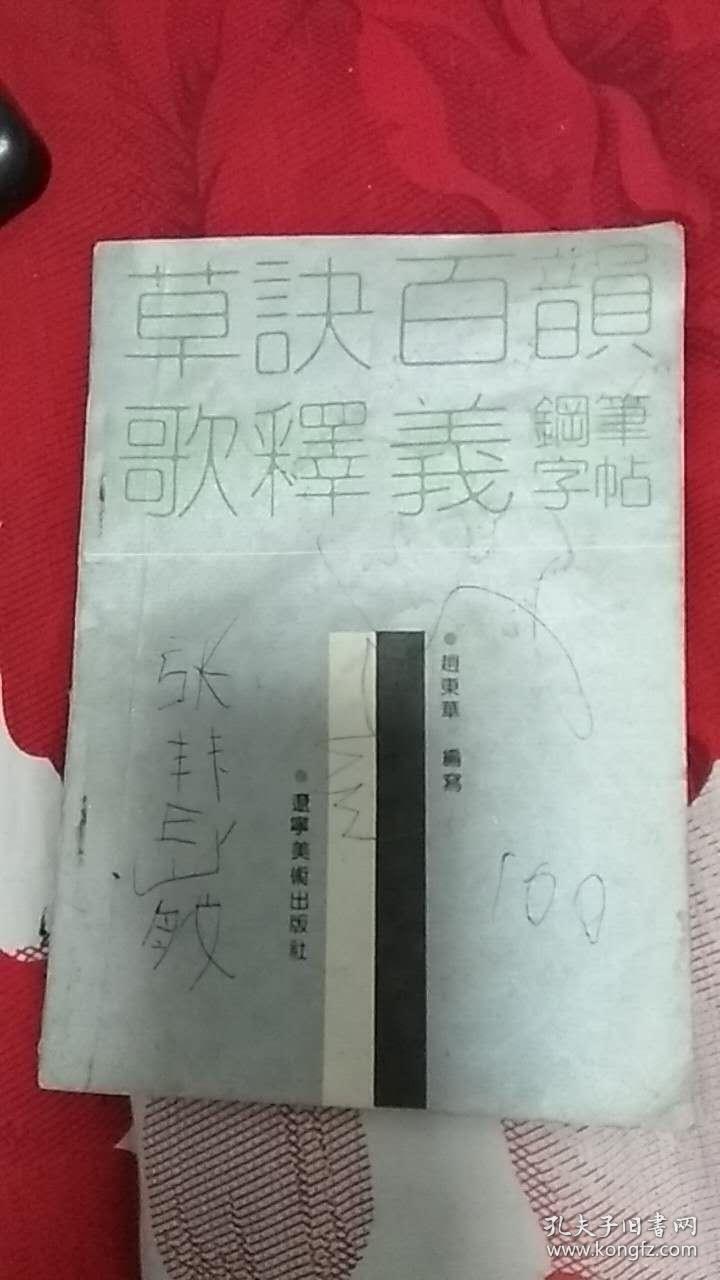 草訣百韻
歌釋義
鋼筆
字帖
趙東華 編寫
遼寧美術出版社
张
100
孔夫子旧书网
www.kongfz.com